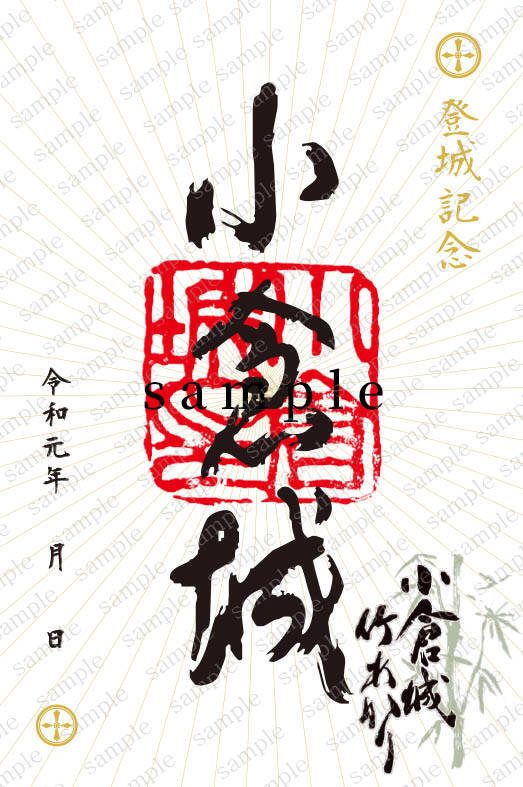 登城記念
小倉城
sample
令和元年　月　日
小倉城
竹あかり